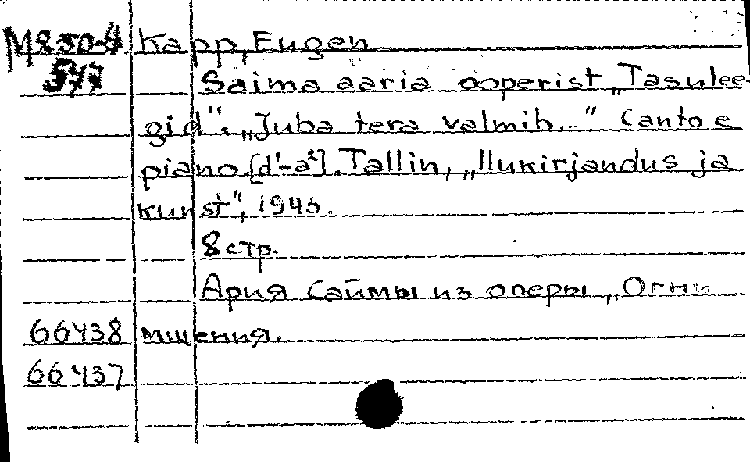 M850-4 Kapp, Eugen
547 Saima aaria ooperist „Tasulee-
gid“: „Juba tera valmib..." Canto e
piano [d¹-a²]. Tallin, „Ilukirjandus ja
kunst", 1945.
8 стр.
Ария Саймы из оперы „Огни
66438 мщения.
66437